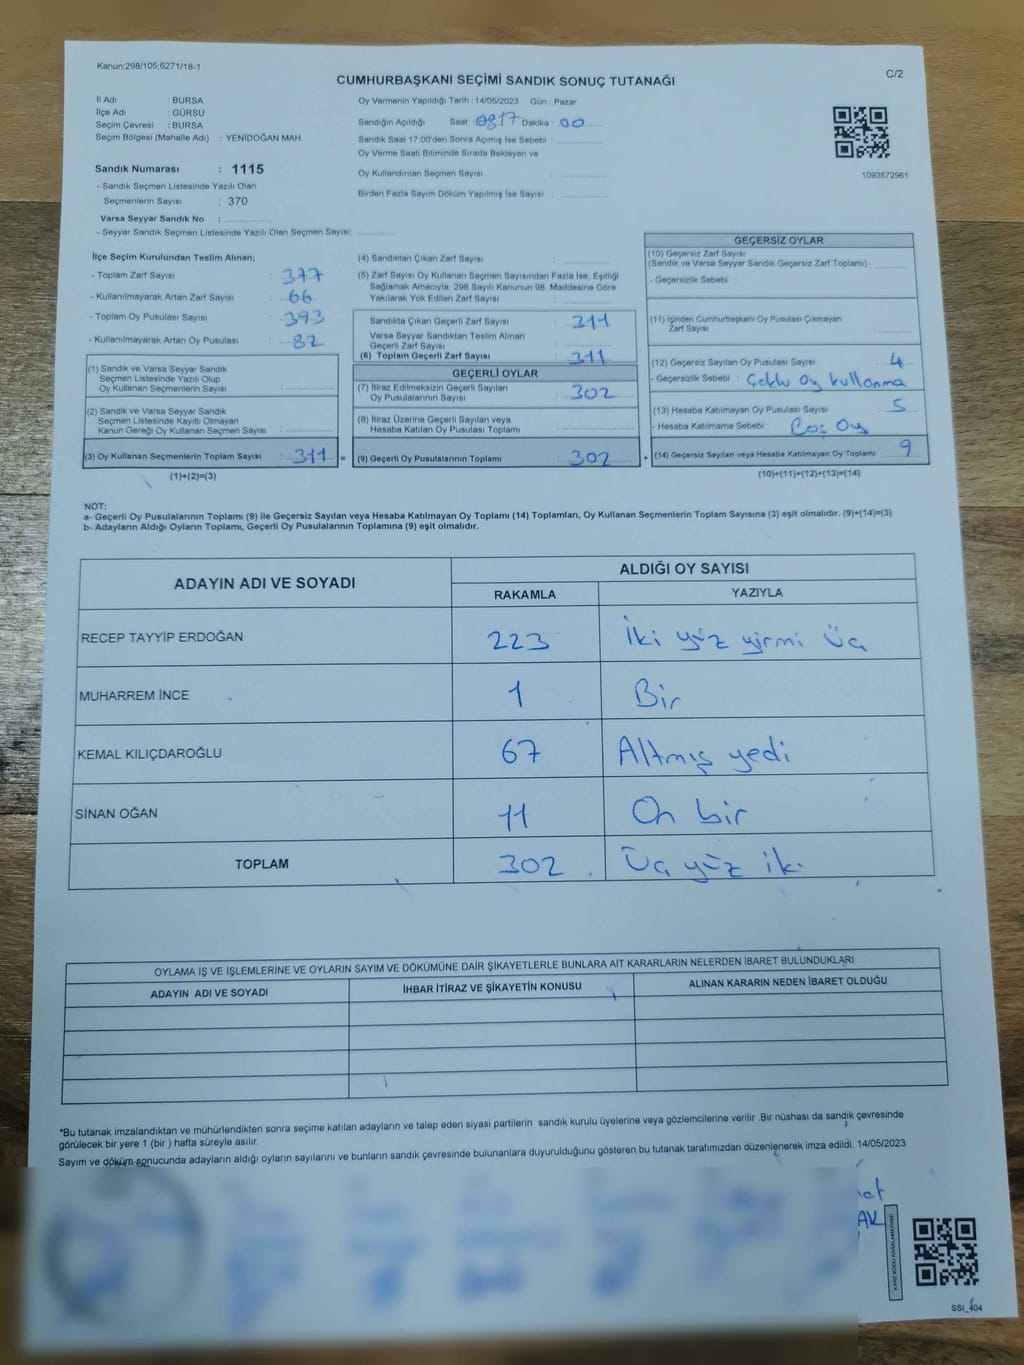 Kanun:298/105;6271/18-1
C/2
CUMHURBAŞKANI SEÇİMİ SANDIK SONUÇ TUTANAĞI
İl Adı : BURSA
İlçe Adı : GÜRSU
Seçim Çevresi : BURSA
Seçim Bölgesi (Mahalle Adı) : YENİDOĞAN MAH.
Sandık Numarası : 1115
- Sandık Seçmen Listesinde Yazılı Olan
Seçmenlerin Sayısı : 370
Varsa Seyyar Sandık No :
- Seyyar Sandık Seçmen Listesinde Yazılı Olan Seçmen Sayısı:
Oy Vermenin Yapıldığı Tarih :14/05/2023 Gün : Pazar
Sandığın Açıldığı Saat : Dakika : 00
Sandık Saat 17:00'den Sonra Açımış İse Sebebi :
Oy Verme Saati Bitiminde Sırada Bekleyen ve
Oy Kullandırılan Seçmen Sayısı :
Birden Fazla Sayım Döküm Yapılmış İse Sayısı :
1093572961
İlçe Seçim Kurulundan Teslim Alınan;
- Toplam Zarf Sayısı : 377
- Kullanılmayarak Artan Zarf Sayısı : 66
- Toplam Oy Pusulası Sayısı : 393
- Kullanılmayarak Artan Oy Pusulası : 82
(1) Sandık ve Varsa Seyyar Sandık
Seçmen Listesinde Yazılı Olup
Oy Kullanan Seçmenlerin Sayısı :
(2) Sandık ve Varsa Seyyar Sandık
Seçmen Listesinde Kayıtlı Olmayan
Kanun Gereği Oy Kullanan Seçmen Sayısı :
(3) Oy Kullanan Seçmenlerin Toplam Sayısı : 311 =
(1)+(2)=(3)
(4) Sandıktan Çıkan Zarf Sayısı :
(5) Zarf Sayısı Oy Kullanan Seçmen Sayısından Fazla İse, Eşitliği
Sağlamak Amacıyla, 298 Sayılı Kanunun 98. Maddesine Göre
Yakılarak Yok Edilen Zarf Sayısı :
Sandıkta Çıkan Geçerli Zarf Sayısı : 311
Varsa Seyyar Sandıktan Teslim Alınan
Geçerli Zarf Sayısı :
(6) Toplam Geçerli Zarf Sayısı : 311
GEÇERLİ OYLAR
(7) İtiraz Edilmeksizin Geçerli Sayılan
Oy Pusulalarının Sayısı : 302
(8) İtiraz Üzerine Geçerli Sayılan veya
Hesaba Katılan Oy Pusulası Toplamı :
(9) Geçerli Oy Pusulalarının Toplamı : 302 +
GEÇERSİZ OYLAR
(10) Geçersiz Zarf Sayısı
(Sandık ve Varsa Seyyar Sandık Geçersiz Zarf Toplamı) :
- Geçersizlik Sebebi :
(11) İçinden Cumhurbaşkanı Oy Pusulası Çıkmayan
Zarf Sayısı :
(12) Geçersiz Sayılan Oy Pusulası Sayısı : 4
- Geçersizlik Sebebi : Çoklu Oy kullanma
(13) Hesaba Katılmayan Oy Pusulası Sayısı : 5
- Hesaba Katılmama Sebebi : Boş Oy
(14) Geçersiz Sayılan veya Hesaba Katılmayan Oy Toplamı : 9
(10)+(11)+(12)+(13)=(14)
NOT:
a- Geçerli Oy Pusulalarının Toplamı (9) ile Geçersiz Sayılan veya Hesaba Katılmayan Oy Toplamı (14) Toplamları, Oy Kullanan Seçmenlerin Toplam Sayısına (3) eşit olmalıdır. (9)+(14)=(3)
b- Adayların Aldığı Oyların Toplamı, Geçerli Oy Pusulalarının Toplamına (9) eşit olmalıdır.
ADAYIN ADI VE SOYADI
ALDIĞI OY SAYISI
RAKAMLA YAZIYLA
RECEP TAYYİP ERDOĞAN 223 İki yüz yirmi üç
MUHARREM İNCE 1 Bir
KEMAL KILIÇDAROĞLU 67 Altmış yedi
SİNAN OĞAN 11 On bir
TOPLAM 302 Üç yüz iki
OYLAMA İŞ VE İŞLEMLERİNE VE OYLARIN SAYIM VE DÖKÜMÜNE DAİR ŞİKAYETLERLE BUNLARA AİT KARARLARIN NELERDEN İBARET BULUNDUKLARI
ADAYIN ADI VE SOYADI İHBAR İTİRAZ VE ŞİKAYETİN KONUSU ALINAN KARARIN NEDEN İBARET OLDUĞU
*Bu tutanak imzalandıktan ve mühürlendikten sonra seçime katılan adayların ve talep eden siyasi partilerin sandık kurulu üyelerine veya gözlemcilerine verilir .Bir nüshası da sandık çevresinde
görülecek bir yere 1 (bir ) hafta süreyle asılır.
Sayım ve döküm sonucunda adayların aldığı oyların sayılarını ve bunların sandık çevresinde bulunanlara duyurulduğunu gösteren bu tutanak tarafımızdan düzenlenerek imza edildi. 14/05/2023
KARE KODU KARALAMAYINIZ!
SSİ_404